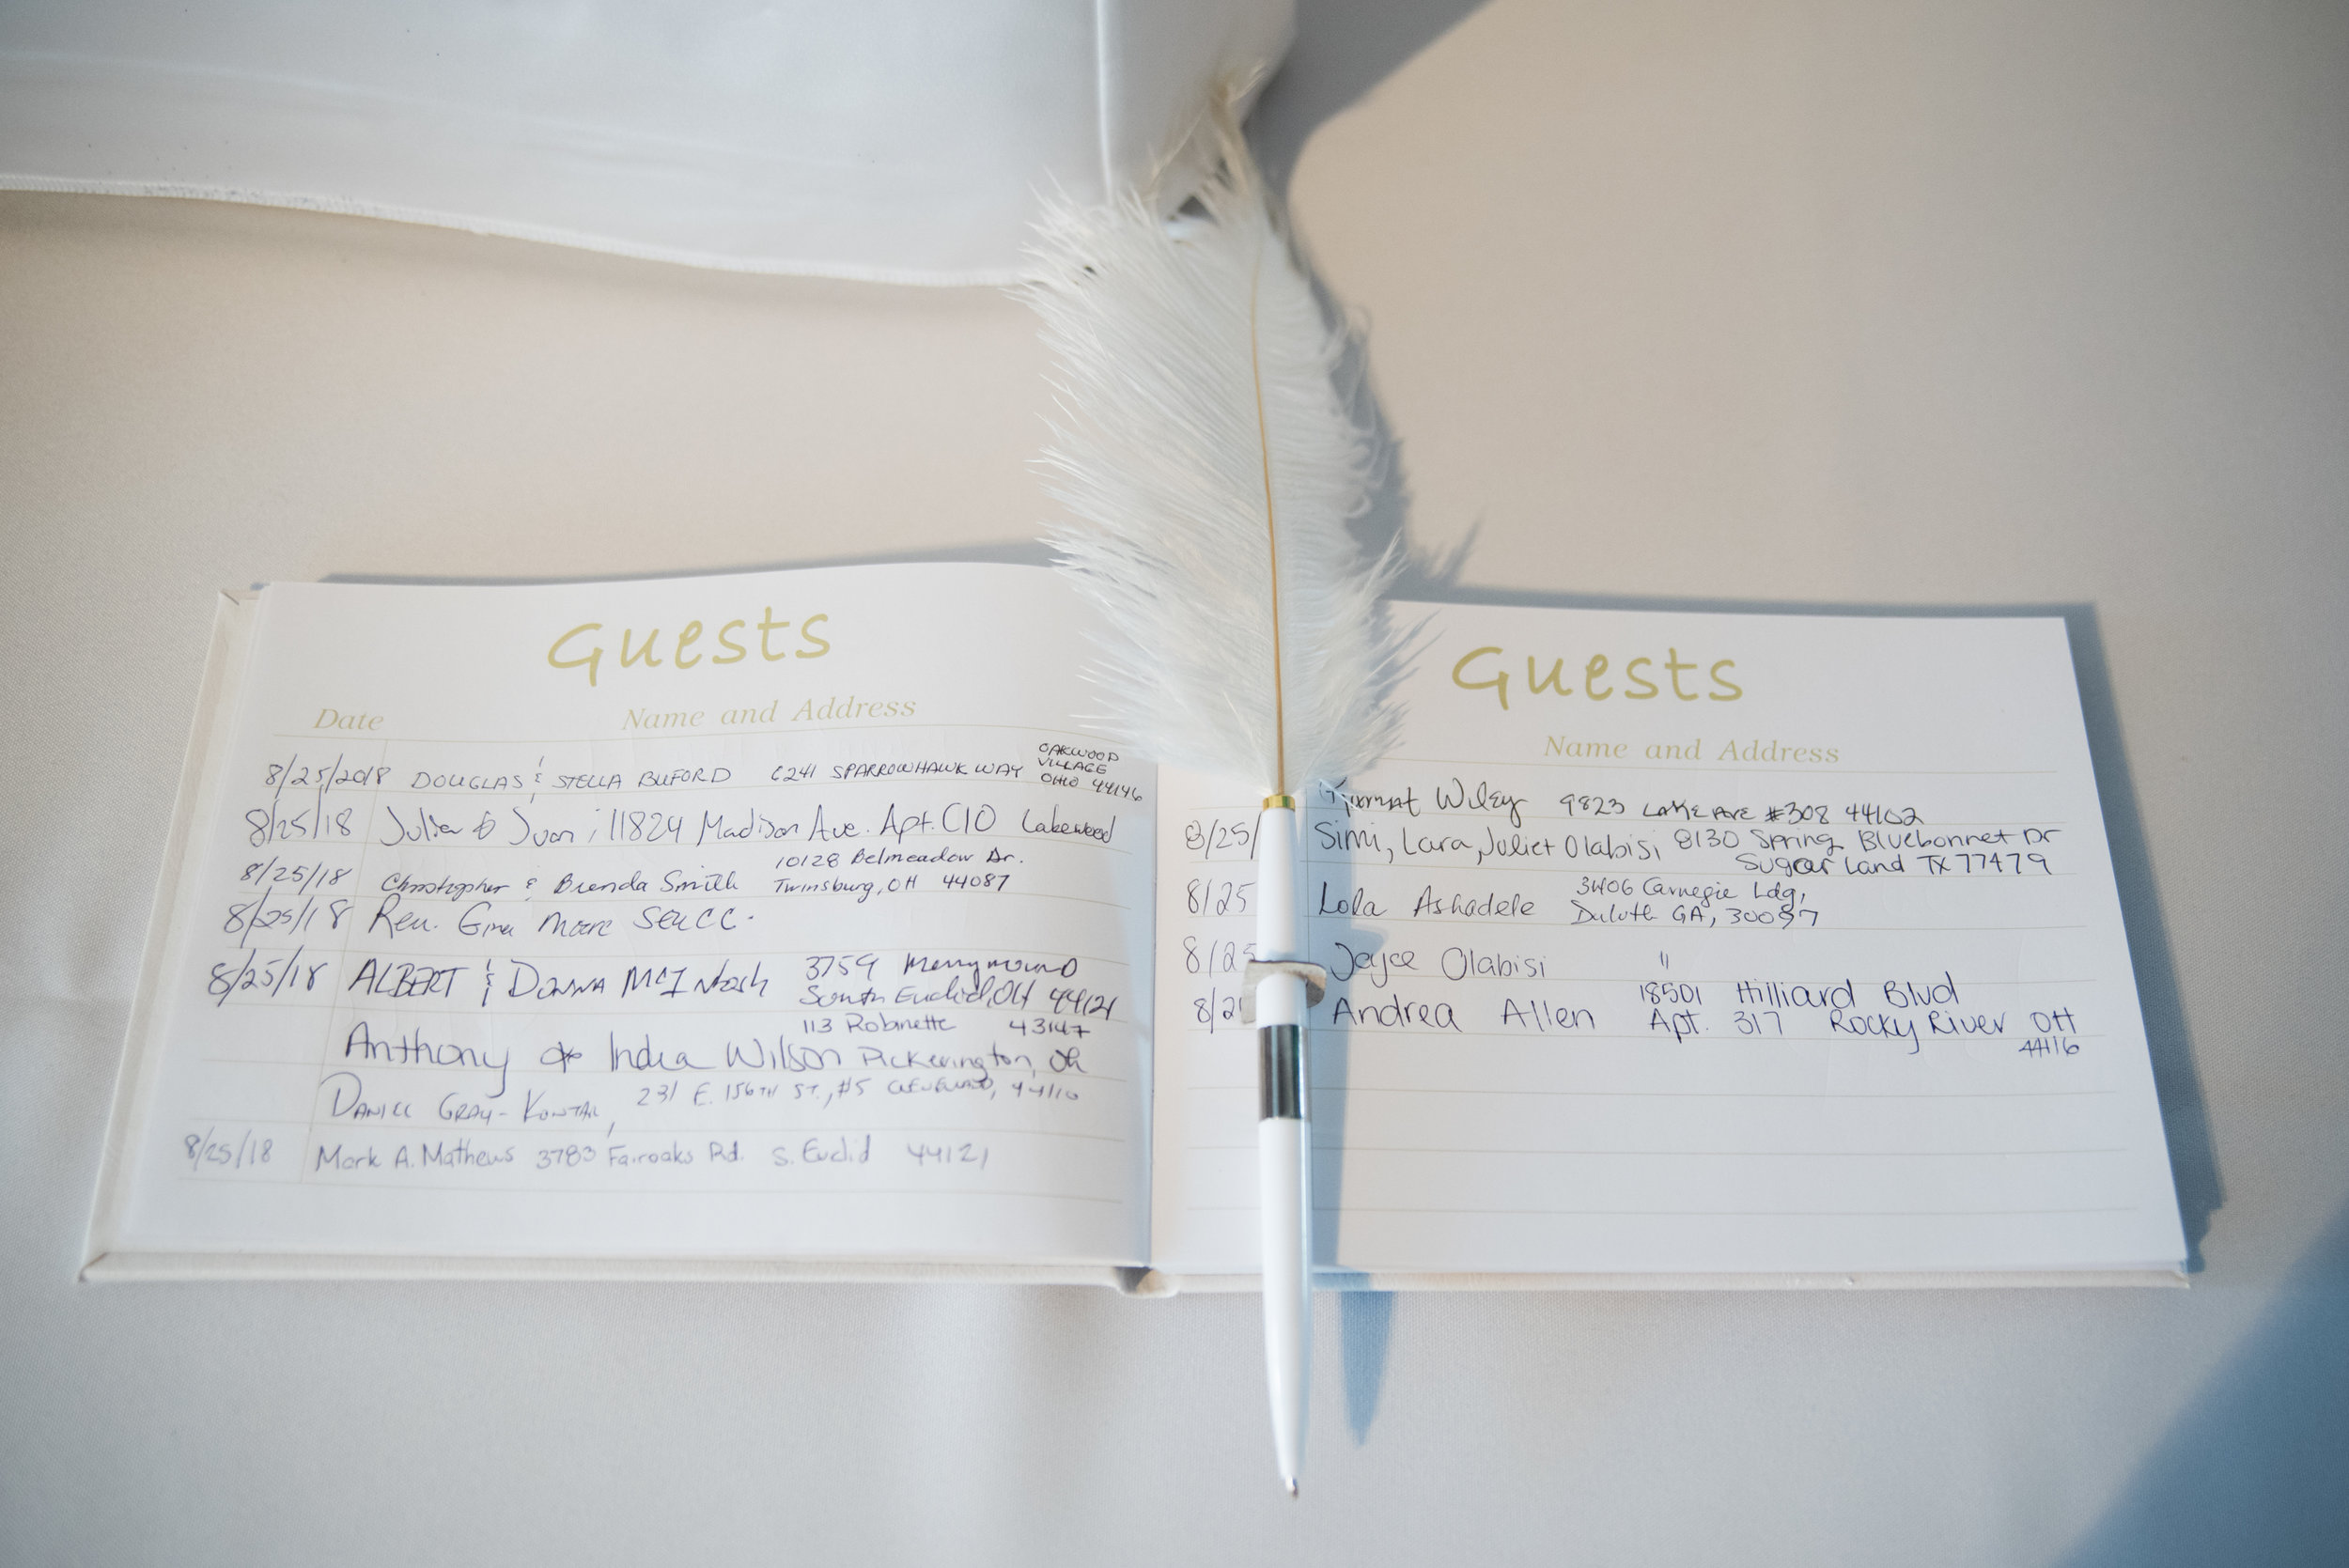 Guests
Date Name and Address
8/25/2018 DOUGLAS & STELLA BUFORD 6241 SPARROWHAWK WAY OAKWOOD
VILLAGE
OHIO 44146
8/25/18 Julia & Juan, 11824 Madison Ave. Apt. C10 Lakewood
10128 Belmeadow Dr.
8/25/18 Christopher & Brenda Smith Twinsburg, OH 44087
8/25/18 Rev. Gina Moore
8/25/18 ALBERT & Donna McIntosh 3759 Merrymound
South Euclid, OH 44121
113 Robinette 43147
Anthony & Indra Wilson Pickerington, Oh
GRAY- 231 E. 156TH ST., #5 CLEVELAND, 44110
8/25/18 Mark A. Mathews 3783 Fairoaks Rd. S. Euclid 44121
Guests
Name and Address
Wiley 9823 LAKE AVE #308 44102
8/25/ Simi, Lara, Juliet Olabisi 8130 Spring Bluebonnet Dr
Sugar Land TX 77479
3406 Carnegie Ldg,
8/25 Lola Ashadele Duluth GA, 30097
8/25 Joyce Olabisi "
18501 Hilliard Blvd
8/2 Andrea Allen Apt. 317 Rocky River OH
44116